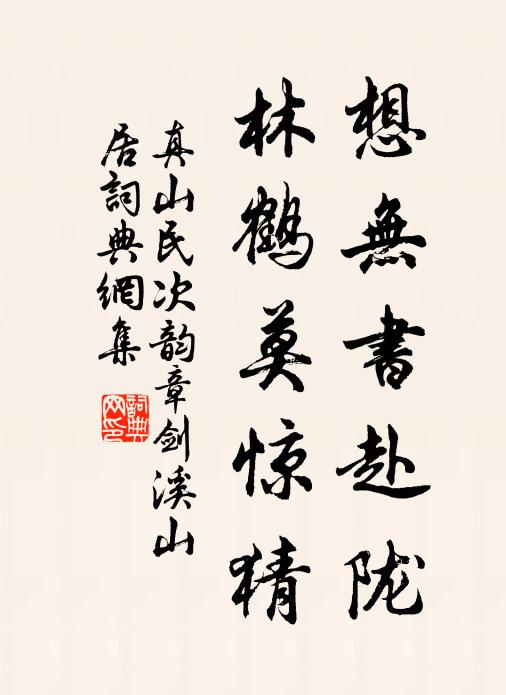 想無書赴陇
林鹤莫惊猜
真山民次韵章剑溪山
居詞典網集
詞典网印